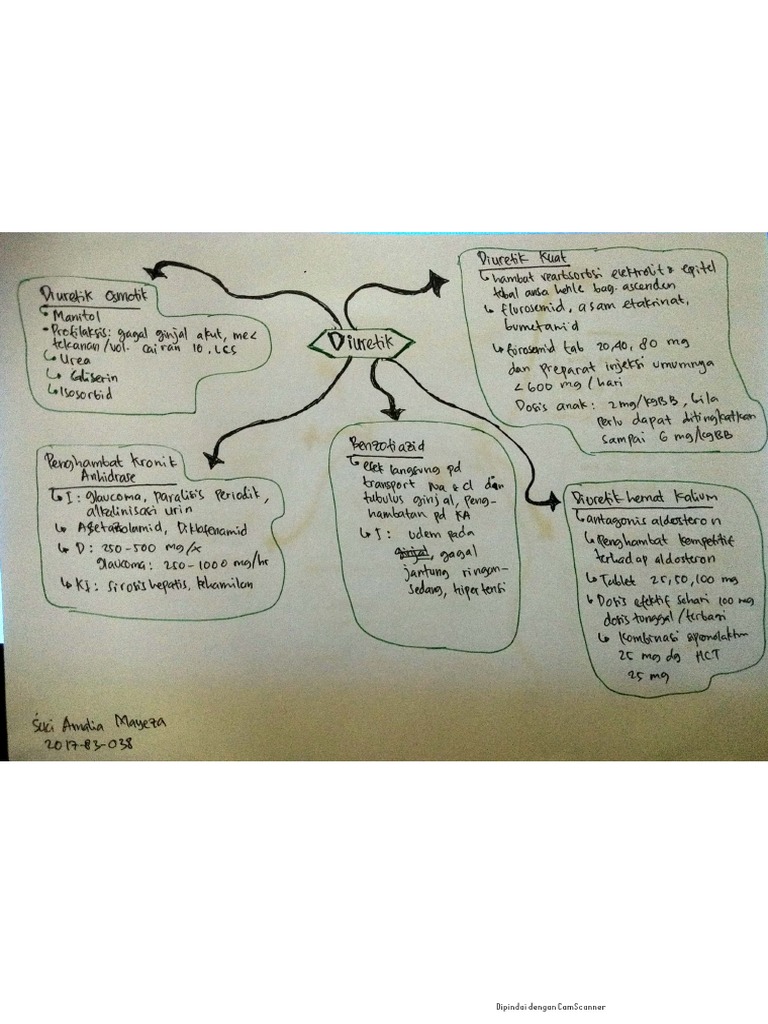 Diuretik
Diuretik Osmotik
Manitol
Profilaksis: gagal ginjal akut, me<
tekanan/vol. cairan IO, LCS
Urea
Gliserin
Isosorbid
Diuretik Kuat
hambat reartsorbsi elektrolit & epitel
tebal ansa henle bag. ascenden
flurosemid, asam etakrinat,
bumetanid
furosemid tab 20, 40, 80 mg
dan preparat injeksi umumnya
<600 mg/hari
Dosis anak: 2mg/kgBB, bila
perlu dapat ditingkatkan
sampai 6 mg/kgBB
Penghambat Kronik
Anhidrase
I: glaucoma, paralisis periodik,
alkalinisasi urin
Asetazolamid, Diklofenamid
D: 250-500 mg/x
glaucoma: 250-1000 mg/hr
KI: sirosis hepatis, kehamilan
Benzotiazid
efek langsung pd
transport Na & Cl dan
tubulus ginjal, peng-
hambatan pd KA
I: udem pada
ginjal, gagal
jantung ringan-
sedang, hipertensi
Diuretik hemat Kalium
antagonis aldosteron
Penghambat kompetitif
terhadap aldosteron
Tablet 25, 50, 100 mg
Dosis efektif sehari 100 mg
dosis tunggal/terbagi
Kombinasi
25 mg dg HCT
25 mg
Suci Amalia Mayeza
2017-83-038
Dipindai dengan CamScanner